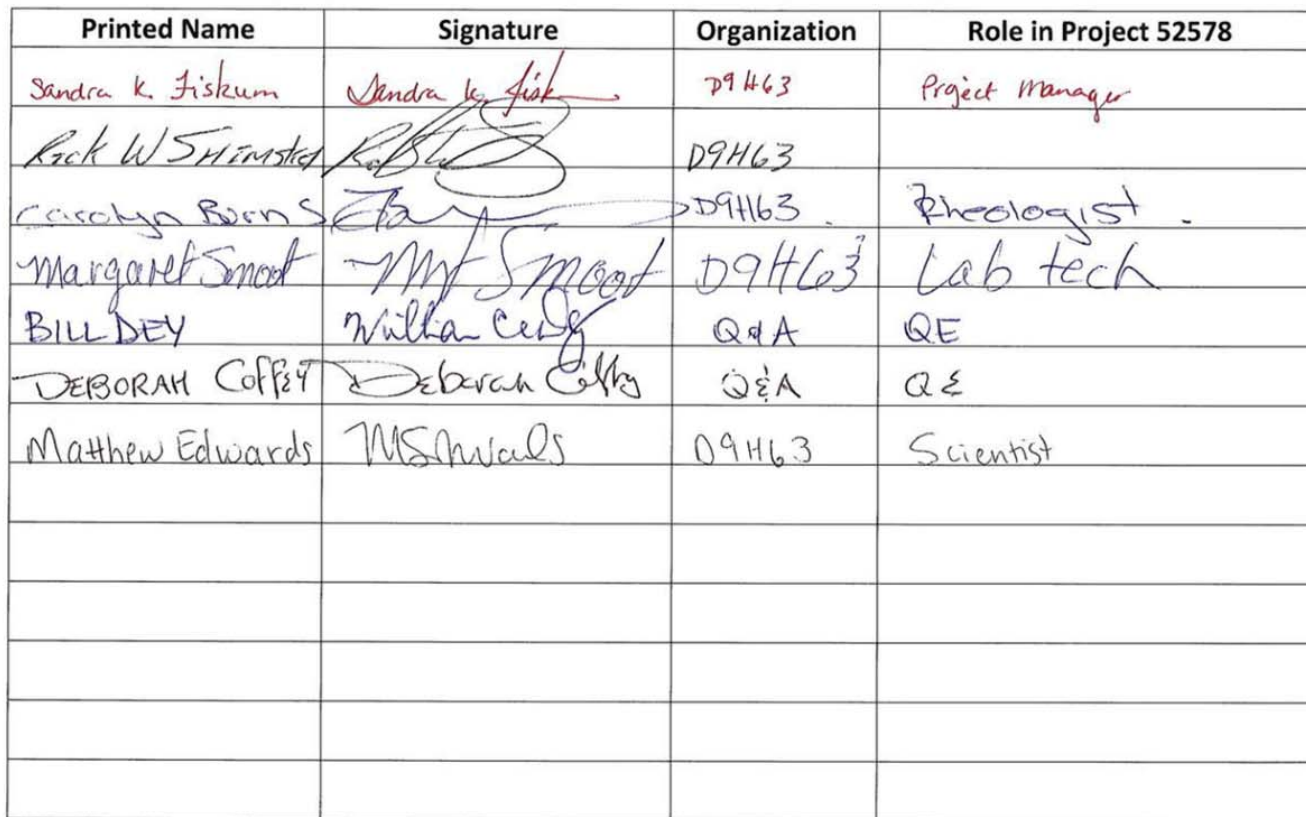 Printed Name Signature Organization Role in Project 52578
Sandra K. Fiskum Sandra K. Fisk D9H63 Project Manager
Rick W Shimskey D9H63
Carolyn Burns D9H63 Rheologist
Margaret Smoot MF Smoot D9H63 Lab tech
BILL DEY Q&A QE
DEBORAH COFFEY Deborah Coffey Q&A QE
Matthew Edwards D9H63 Scientist